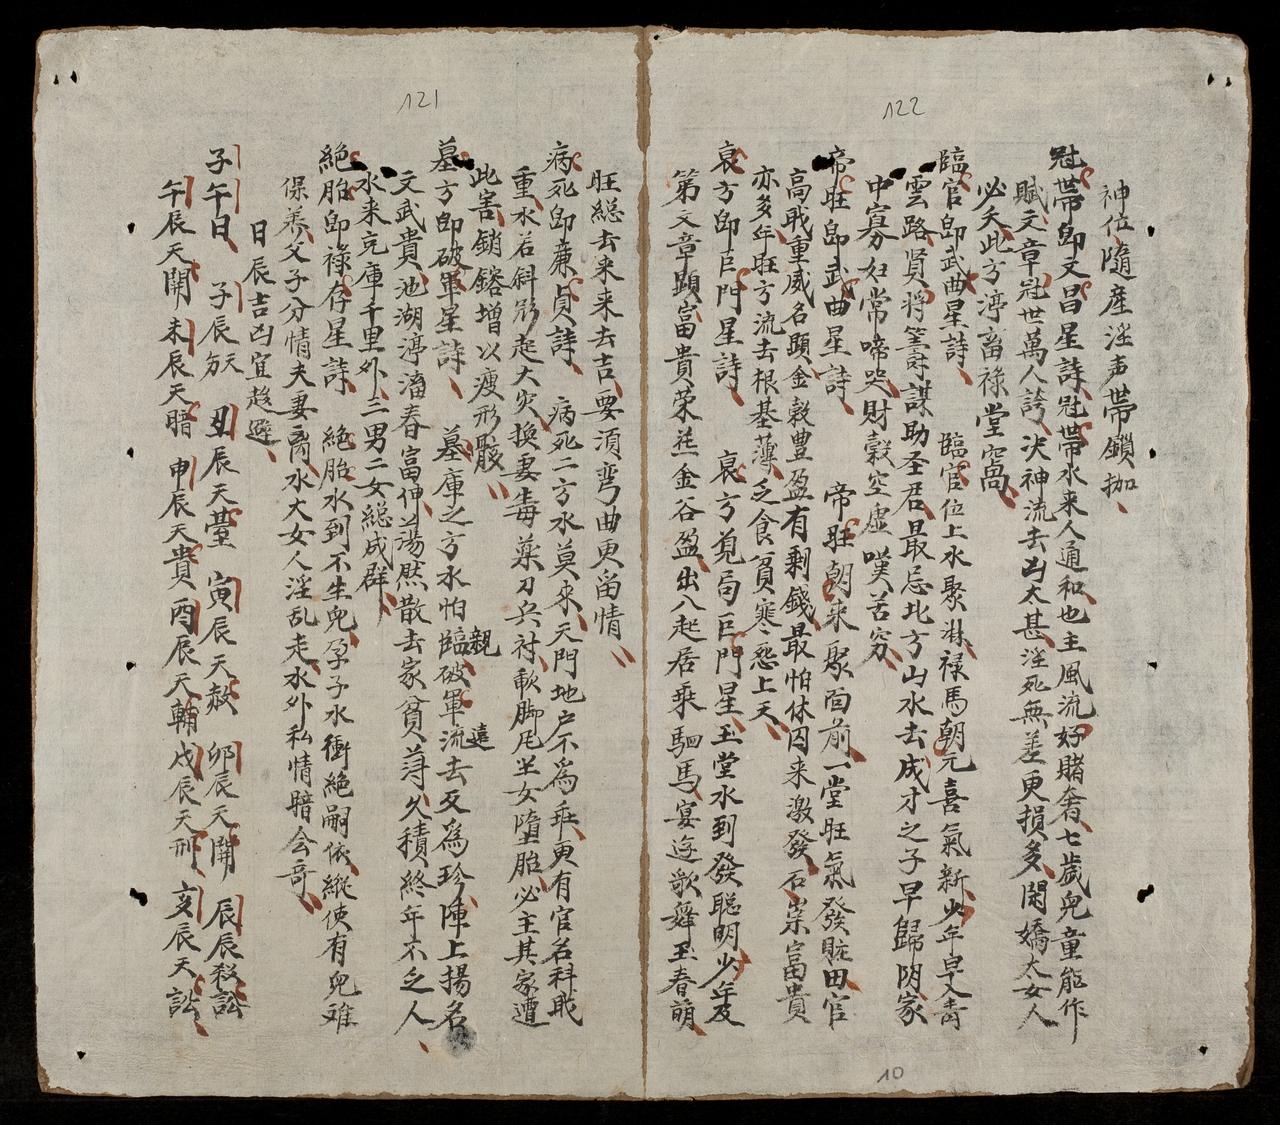 122
神位隨產淫声帶鎖枷
冠帶即文昌星詩冠帶水来人通和也主風流好賭奢七歲兒童能作
賦文章冠世萬人誇决神流去凶太甚淫死無差更損多閑嬌大女人
必夭此方渟畜祿堂窩
臨官即武曲星詩 臨官位上水聚淋禄馬朝元喜氣新少年早又青
雲路賢將筹謀助圣君最忌此方山水去成才之子早歸阴家
中寡妇常啼哭財穀空虛嘆苦穷
帝旺即武曲星詩 帝旺朝来聚面前一堂旺氣發庄田官
高戢重威名顯金穀豊盈有剩錢最怕休囚来激發石崇富貴
亦多年旺方流去根基薄乏食貧寒怨上天
衰方即巨門星詩 衰方覓局巨門星玉堂水到發聰明少年及
第文章顯富貴荣𦬆金谷盈出八起居乘駟馬宴遊歌舞玉春萌
10
121
旺総去来来去吉要須弯曲更留情
病死即廉貞詩 病死二方水莫来天門地户不為乖更有官名科戢
重水若斜𣃁起大灾换妻毒藥刀兵討軟脚㞎𡉄女墮胎必主其家遭
此害銷鎔增以瘦形骸
墓方即破軍星詩 墓庫之方水怕臨親破軍流遠去反為珍陣上揚名
文武貴池湖渟瀦春富伸蕩然散去家貧薄久積終年不乏人
水来克庫千里外三男二女総成群
絶胎即祿存星詩 絶胎水到不生兒孕子水衝絶嗣依縱使有兒难
保养父子分情夫妻离水大女人淫乱走水外私情暗会奇
日辰吉凶宜趋避
子午日 子辰劣天 丑辰天䑓 寅辰天赦 卯辰天開 辰辰殺訟
午辰天開 未辰天暗 申辰天貴 酉辰天輔 戌辰天刑 亥辰天訟